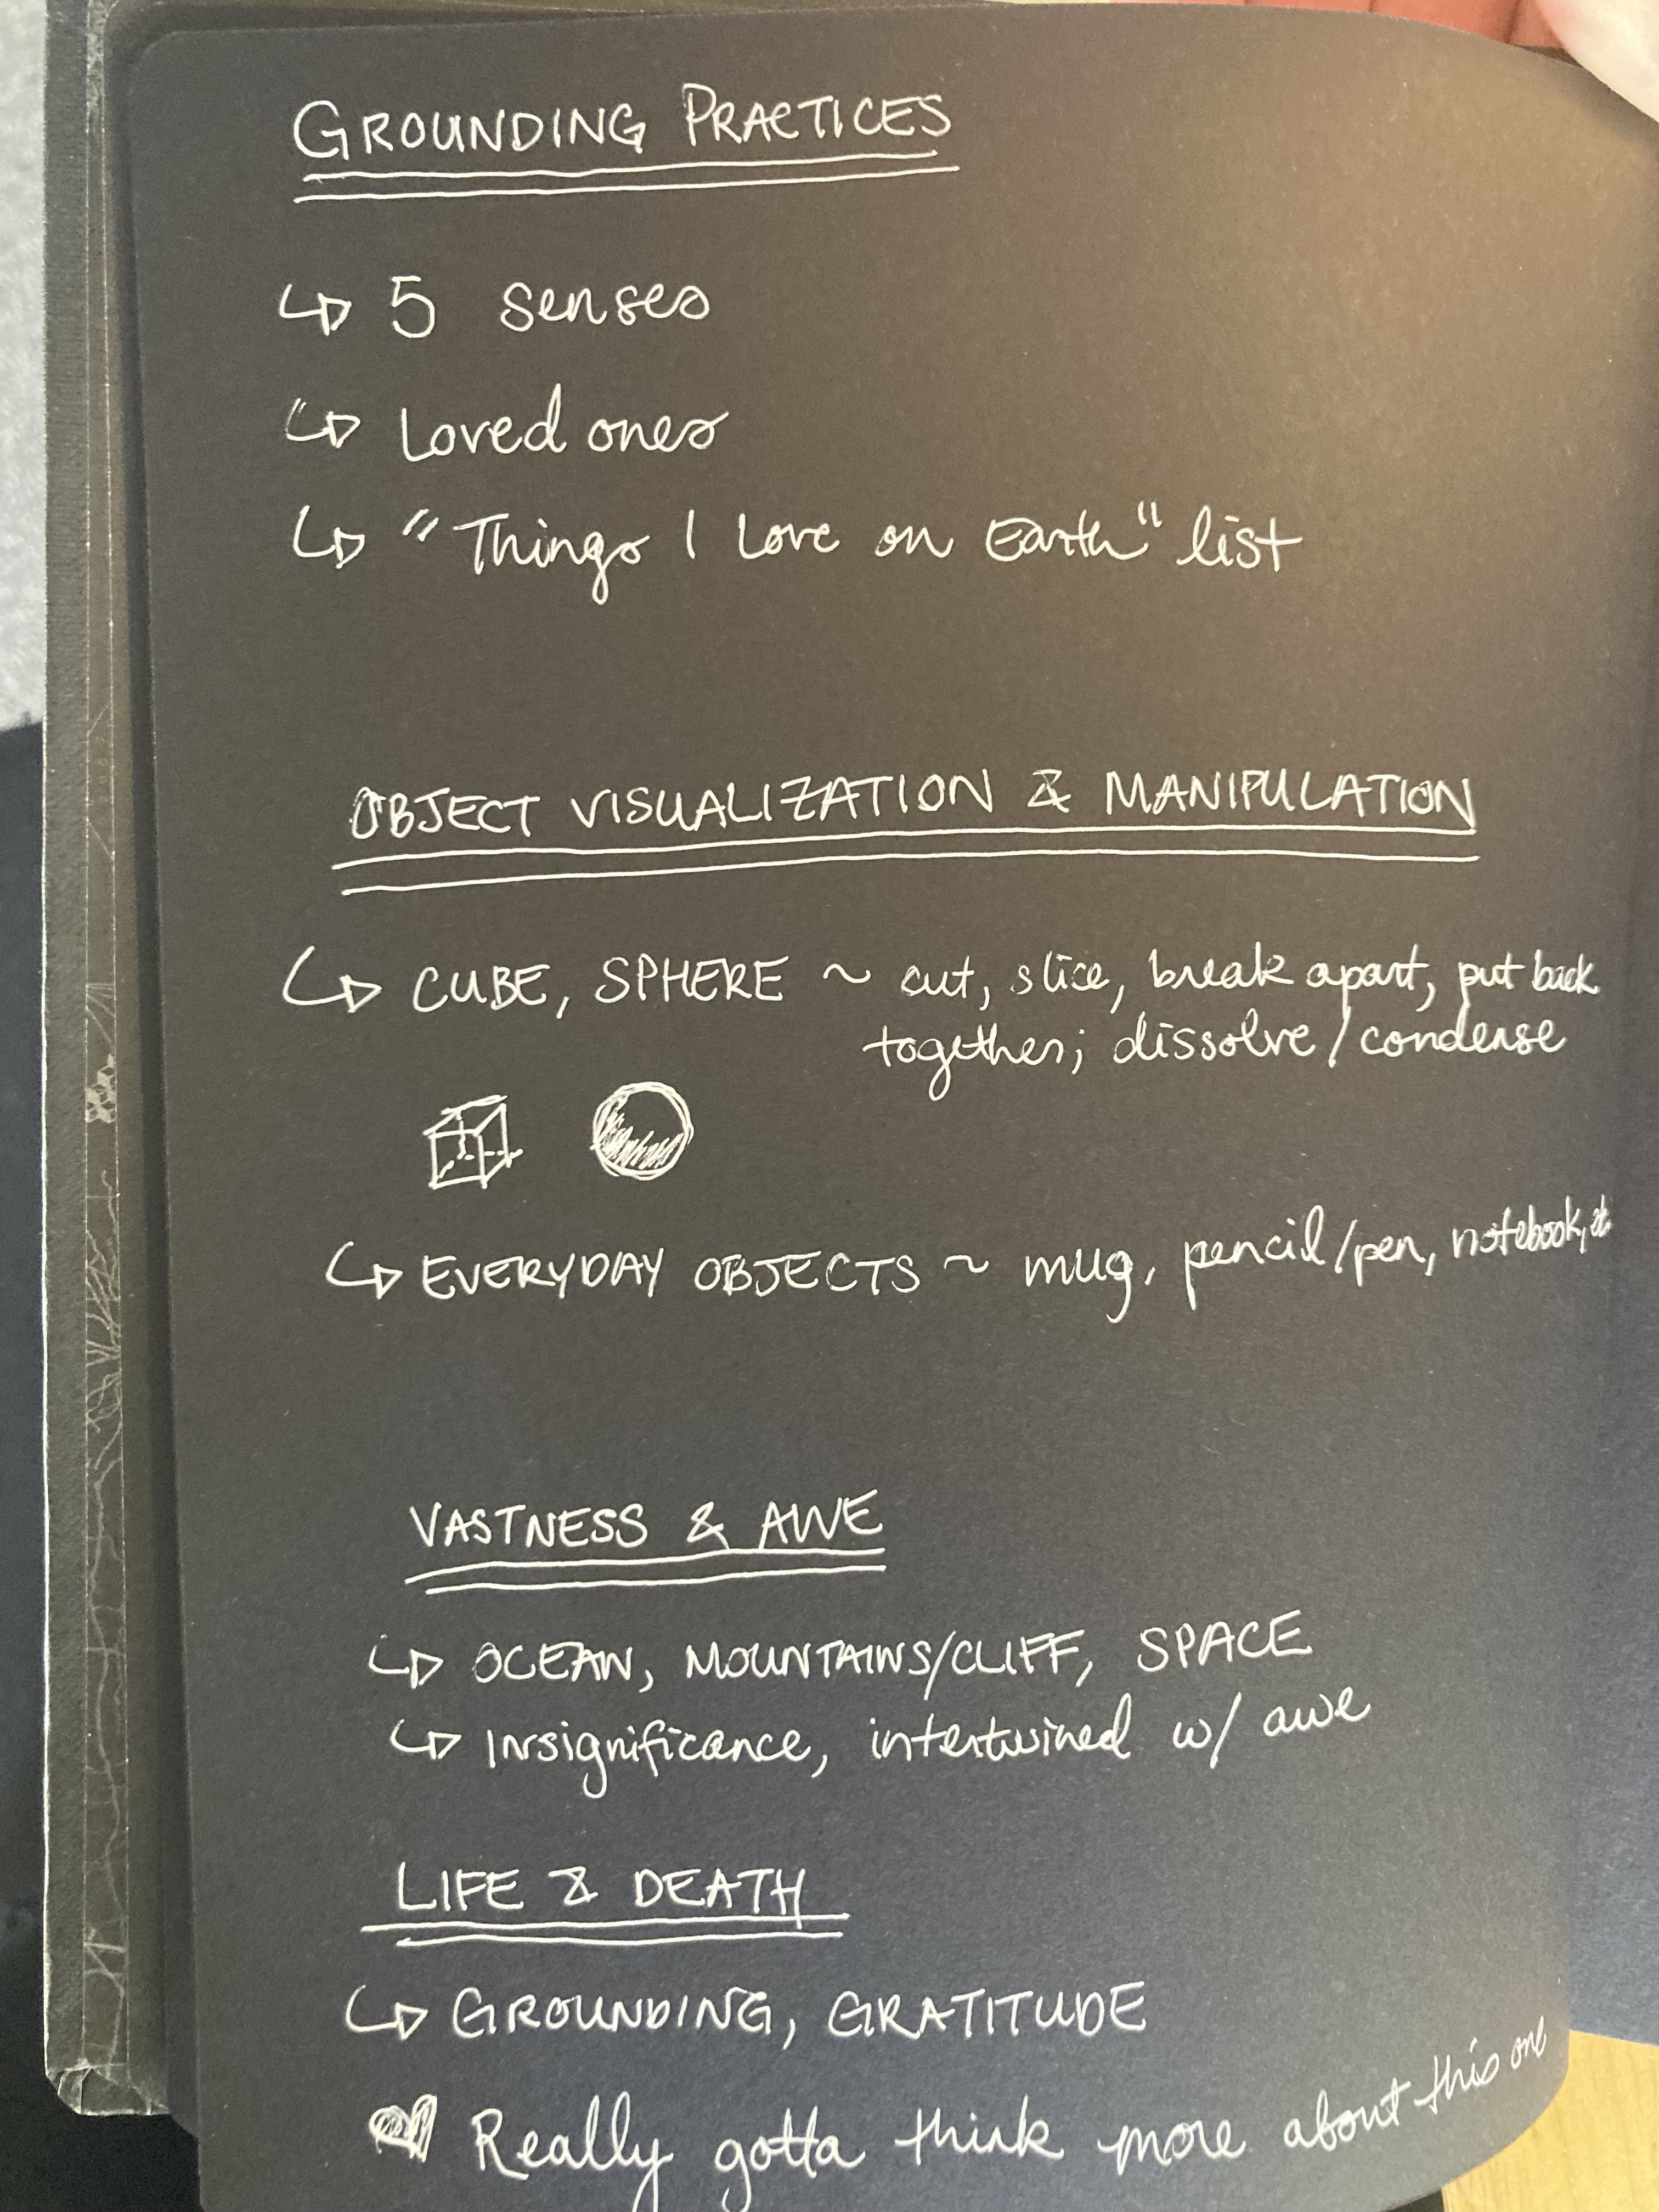 GROUNDING PRACTICES
5 senses
Loved ones
"Things I Love on Earth" list
OBJECT VISUALIZATION & MANIPULATION
CUBE, SPHERE ~ cut, slice, break apart, put back
together; dissolve/condense
EVERYDAY OBJECTS ~ mug, pencil/pen, notebook, etc
VASTNESS & AWE
OCEAN, MOUNTAINS/CLIFF, SPACE
Insignificance, intertwined w/ awe
LIFE & DEATH
GROUNDING, GRATITUDE
Really gotta think more about this one